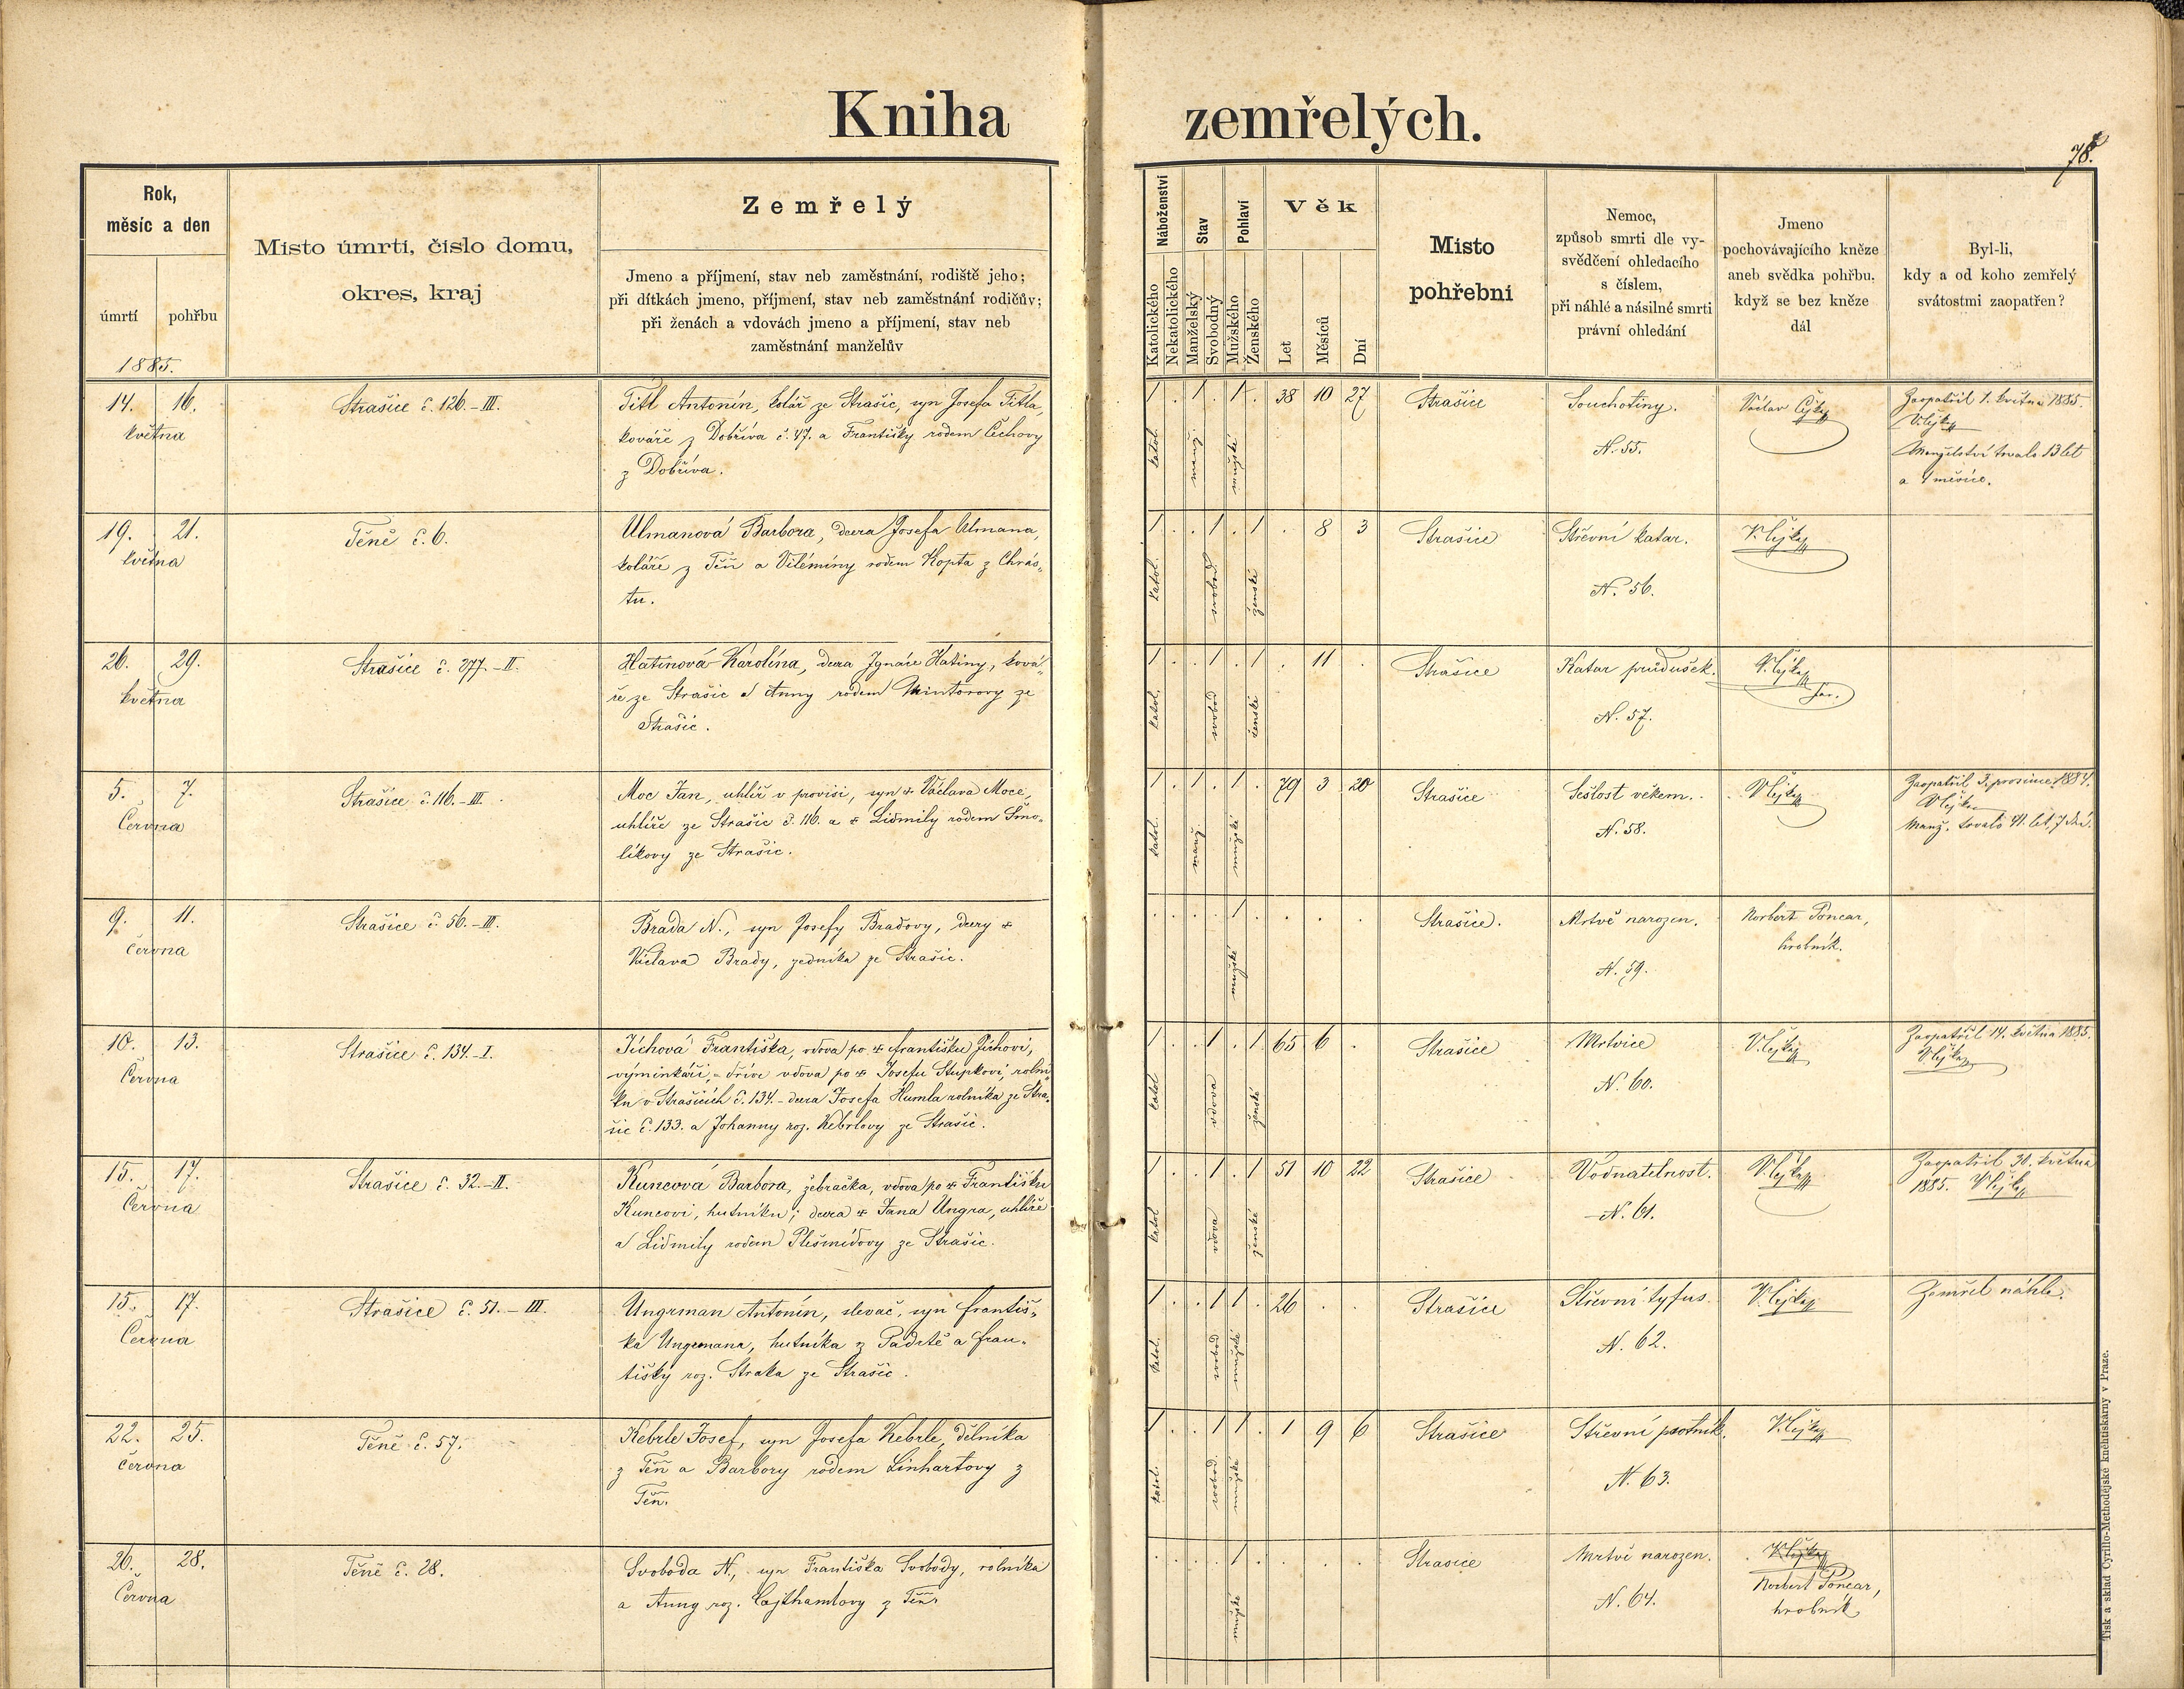 Kniha zemřelých.
78.
Rok,
měsíc a den
úmrtí
pohřbu
1885.
Místo úmrtí, číslo domu,
okres, kraj
Zemřelý
Jmeno a příjmení, stav neb zaměstnání, rodiště jeho;
při dítkách jmeno, příjmení, stav neb zaměstnání rodičův;
při ženách a vdovách jmeno a příjmení, stav neb
zaměstnání manželův
Náboženství
Katolického
Nekatolického
Stav
Manželský
Svobodný
Pohlaví
Mužského
Ženského
Věk
Let
Měsíců
Dní
Místo
pohřební
Nemoc,
způsob smrti dle vy-
svědčení ohledacího
s číslem,
při náhlé a násilné smrti
právní ohledání
Jmeno
pochovávajícího kněze
aneb svědka pohřbu,
když se bez kněze
dál
Byl-li,
kdy a od koho zemřelý
svátostmi zaopatřen?
14. 16.
května
Strašice č. 126.-III.
Titl Antonín, kolář ze Strašic, syn Josefa Titla,
kováře z Dobříva č. 47. a Františky rodem Čechovy
z Dobříva.
1 . 1 . 1 . 38 10 27
katol. manž. mužské
Strašice
Souchotiny.
N. 55.
Václav Cejka
Zaopatřil 1. května 1885.
V. Cejka
Manželství trvalo 13 let
a 1 měsíc.
19. 21.
května
Těně č. 6.
Ulmanová Barbora, dcera Josefa Ulmana,
koláře z Těň a Vilémíny rodem Kopta z Chrás-
tu.
1 . . 1 . 1 . 8 3
katol. svobod. ženské
Strašice
Střevní katar.
N. 56.
V. Cejka
26. 29.
května
Strašice č. 277.-II.
Hatinová Karolína, dcera Ignáce Hatiny, ková-
ře ze Strašic a Anny rodem Mintorovy ze
Strašic.
1 . . 1 . 1 . 11 .
katol. svobod ženské
Strašice
Katar průdušek.
N. 57.
V. Cejka
far.
5. 7.
Června
Strašice č. 116.-III.
Moc Jan, uhlíř v provisi, syn + Václava Moce,
uhlíře ze Strašic č. 116. a + Lidmily rodem Smo-
líkovy ze Strašic.
1 . 1 . 1 . 79 3 20
katol. manž. mužské
Strašice
Sešlost věkem.
N. 58.
V. Cejka
Zaopatřil 3. prosince 1884.
V. Cejka
Manž. trvalo 41. let, 7 dní.
9. 11.
Června
Strašice č. 56.-III.
Brada N., syn Josefy Bradovy, dcery +
Václava Brady, zedníka ze Strašic.
. . . . 1 . . . .
mužské
Strašice.
Mrtvě narozen.
N. 59.
Norbert Poncar,
hrobník.
10. 13.
Června
Strašice č. 134.-I.
Jíchová Františka, vdova po + Františku Jíchovi,
výminkáři, - dříve vdova po + Josefu Stupkovi, rolní-
ku v Strašicích č. 134. - dcera Josefa Humla rolníka ze Stra-
šic č. 133. a Johanny roz. Kebrlovy ze Strašic.
1 . . 1 . 1 65 6 .
katol vdova ženské
Strašice
Mrtvice
N. 60.
V. Cejka
Zaopatřil 14. května 1885.
V. Cejka
15. 17.
Června
Strašice č. 32.-II.
Kuncová Barbora, žebračka, vdova po + Františku
Kuncovi, hutníku; dcera + Jana Ungra, uhlíře
a Lidmily rodem Plešmídovy ze Strašic.
1 . . 1 . 1 51 10 22
katol vdova ženské
Strašice
Vodnatelnost.
N. 61.
V. Cejka
Zaopatřil 30. května
1885. V. Cejka
15. 17.
Června
Strašice č. 51.-III.
Ungrman Antonín, slevač, syn Františ-
ka Ungrmana, hutníka z Padrtě a Fran-
tišky roz. Straka ze Strašic.
1 . . 1 1 . 26 . .
katol. svobod mužské
Strašice
Střevní tyfus.
N. 62.
V. Cejka
Zemřel náhle.
22. 25.
Června
Těně č. 57.
Kebrle Josef, syn Josefa Kebrle, dělníka
z Těň a Barbory rodem Linhartovy z
Těň.
1 . . 1 1 . 1 9 6
katol. svobod. mužské
Strašice
Střevní psotník.
N. 63.
V. Cejka
26. 28.
Června
Těně č. 28.
Svoboda N., syn Františka Svobody, rolníka
a Anny roz. Cajthamlovy z Těň.
. . . . 1 . . . .
mužské
Strasice
Mrtvě narozen.
N. 64.
V. Cejka
Norbert Poncar,
hrobník
Tisk a sklad Cyrillo-Methodějské kněhtiskárny v Praze.